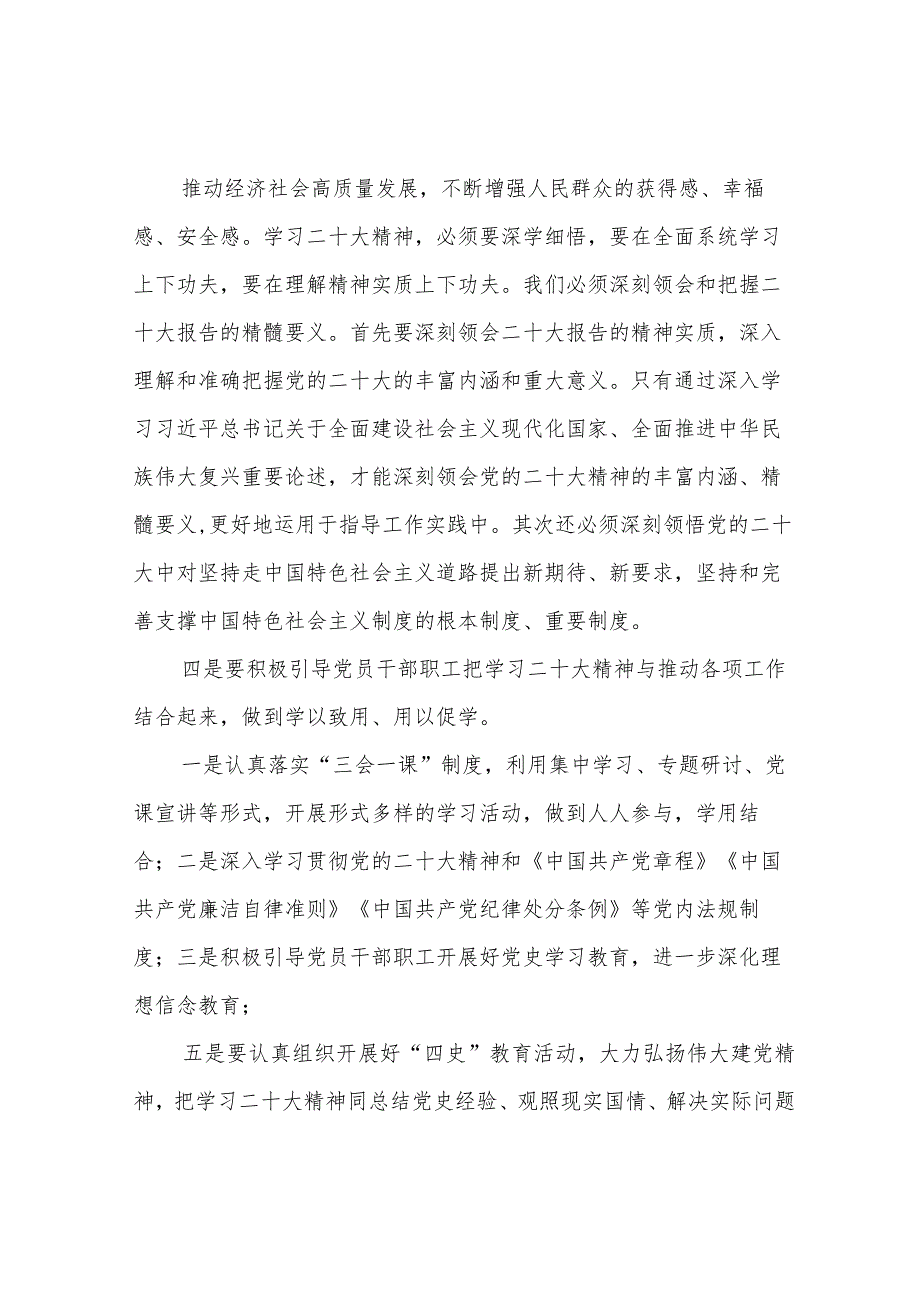 推动经济社会高质量发展，不断增强人民群众的获得感、幸福
感、安全感。学习二十大精神，必须要深学细悟，要在全面系统学习
上下功夫，要在理解精神实质上下功夫。我们必须深刻领会和把握二
十大报告的精髓要义。首先要深刻领会二十大报告的精神实质，深入
理解和准确把握党的二十大的丰富内涵和重大意义。只有通过深入学
习习近平总书记关于全面建设社会主义现代化国家、全面推进中华民
族伟大复兴重要论述，才能深刻领会党的二十大精神的丰富内涵、精
髓要义,更好地运用于指导工作实践中。其次还必须深刻领悟党的二十
大中对坚持走中国特色社会主义道路提出新期待、新要求，坚持和完
善支撑中国特色社会主义制度的根本制度、重要制度。
四是要积极引导党员干部职工把学习二十大精神与推动各项工作
结合起来，做到学以致用、用以促学。
一是认真落实“三会一课”制度，利用集中学习、专题研讨、党
课宣讲等形式，开展形式多样的学习活动，做到人人参与，学用结
合；二是深入学习贯彻党的二十大精神和《中国共产党章程》《中国
共产党廉洁自律准则》《中国共产党纪律处分条例》等党内法规制
度；三是积极引导党员干部职工开展好党史学习教育，进一步深化理
想信念教育；
五是要认真组织开展好“四史”教育活动，大力弘扬伟大建党精
神，把学习二十大精神同总结党史经验、观照现实国情、解决实际问题